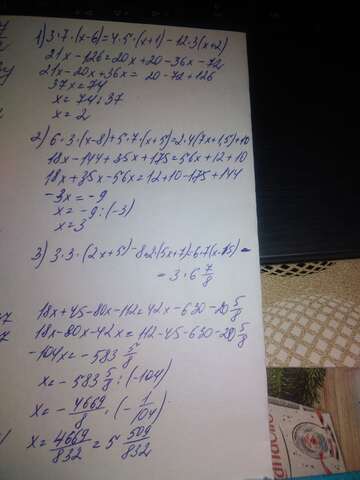 1) 3·7·(x-6)=4·5·(x+1)-12·3(x+2)
21x-126=20x+20-36x-72
21x-20x+36x=20-72+126
37x=74
x=74:37
x=2
2) 6·3·(x-8)+5·7·(x+5)=2·4(7x+1,5)+10
18x-144+35x+175=56x+12+10
18x+35x-56x=12+10-175+144
-3x=-9
x=-9:(-3)
x=3
3) 3·3·(2x+5)-8·2(5x+7)=6·7(x-15)-
-3·6 7/8
18x+45-80x-112=42x-630-20 5/8
18x-80x-42x=112-45-630-20 5/8
-104x=-583 5/8
x=-583 5/8:(-104)
x=-4669/8·(-1/104)
x=4669/832=5 509/832